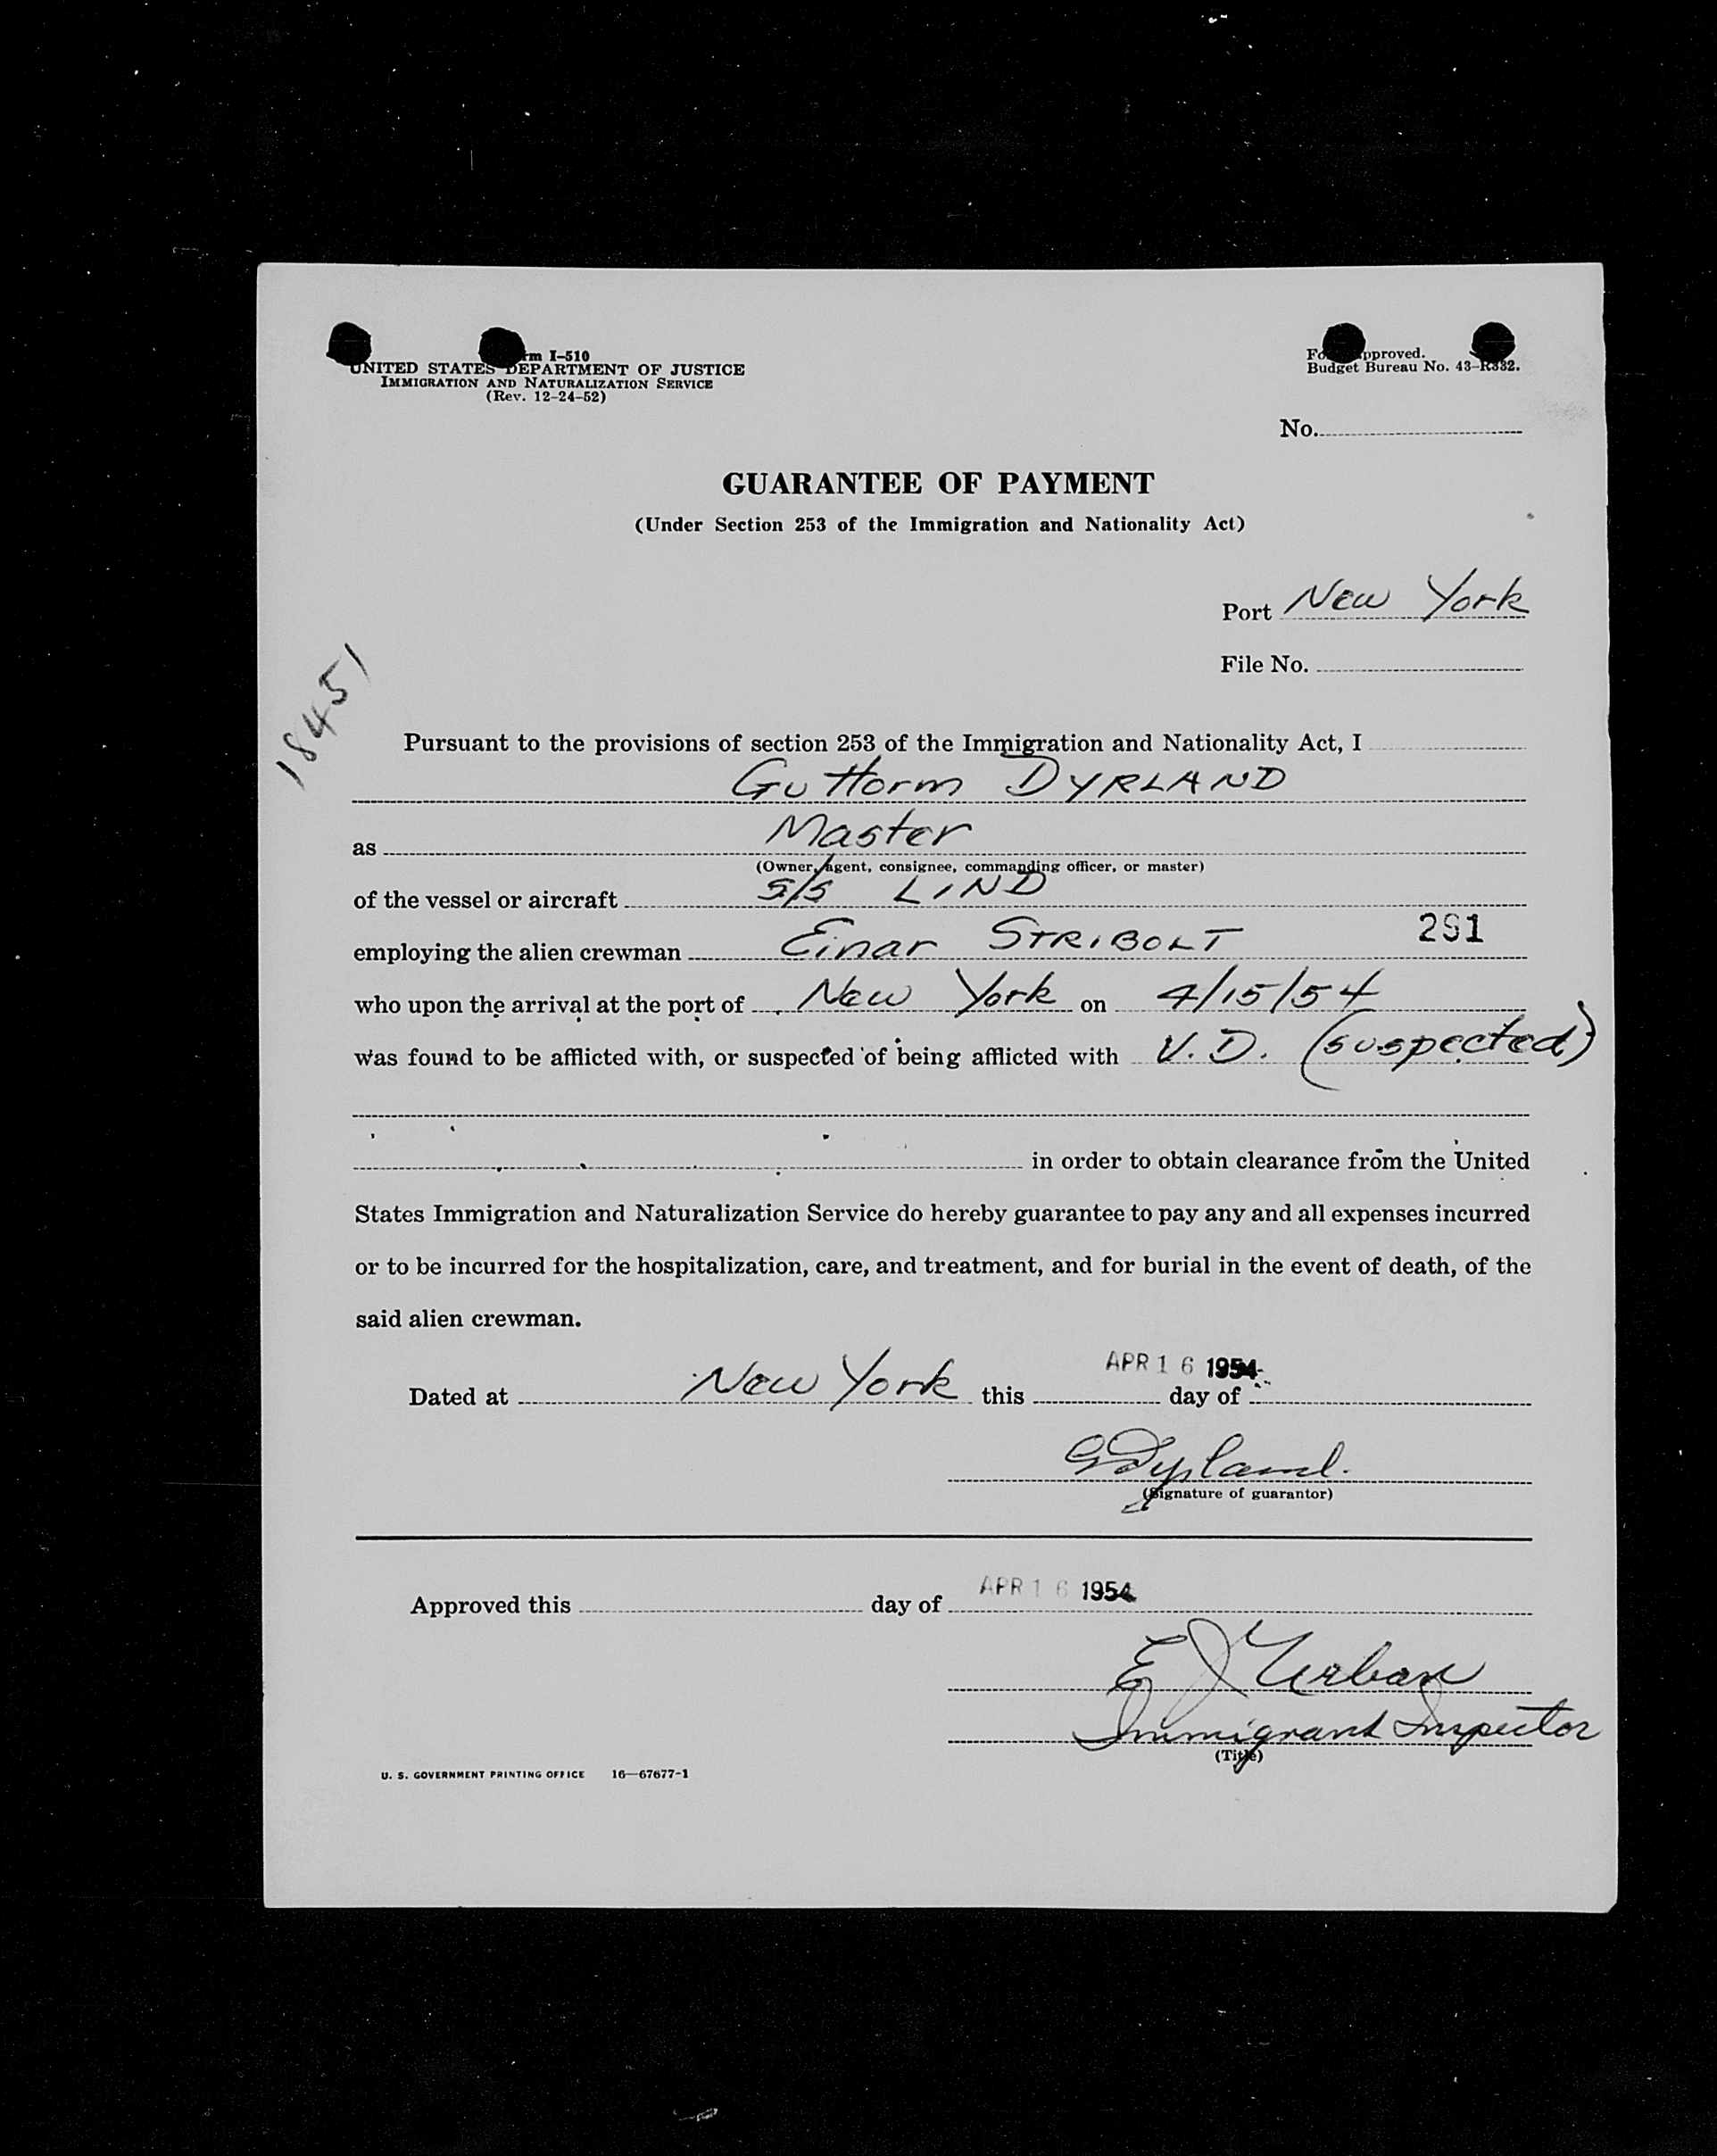 Form I-510
UNITED STATES DEPARTMENT OF JUSTICE
IMMIGRATION AND NATURALIZATION SERVICE
(Rev. 12-24-52)
Form approved.
Budget Bureau No. 43-R332.
No.
GUARANTEE OF PAYMENT
(Under Section 253 of the Immigration and Nationality Act)
Port New York
File No.
18451
Pursuant to the provisions of section 253 of the Immigration and Nationality Act, I
Guttorm DYRLAND
as Master
(Owner, agent, consignee, commanding officer, or master)
of the vessel or aircraft S/S LIND
employing the alien crewman Einar STRIBOLT 291
who upon the arrival at the port of New York on 4/15/54
was found to be afflicted with, or suspected of being afflicted with V.D. (suspected)
in order to obtain clearance from the United
States Immigration and Naturalization Service do hereby guarantee to pay any and all expenses incurred
or to be incurred for the hospitalization, care, and treatment, and for burial in the event of death, of the
said alien crewman.
APR 16 1954
Dated at New York this day of
GDyrland.
(Signature of guarantor)
APR 16 1954
Approved this day of
E J Urban
Immigrant Inspector
(Title)
U. S. GOVERNMENT PRINTING OFFICE 16—67677-1